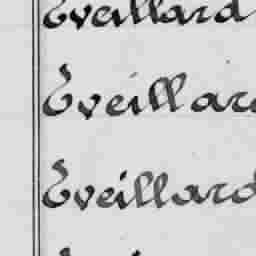 Eveillard
Eveillard
Eveillard